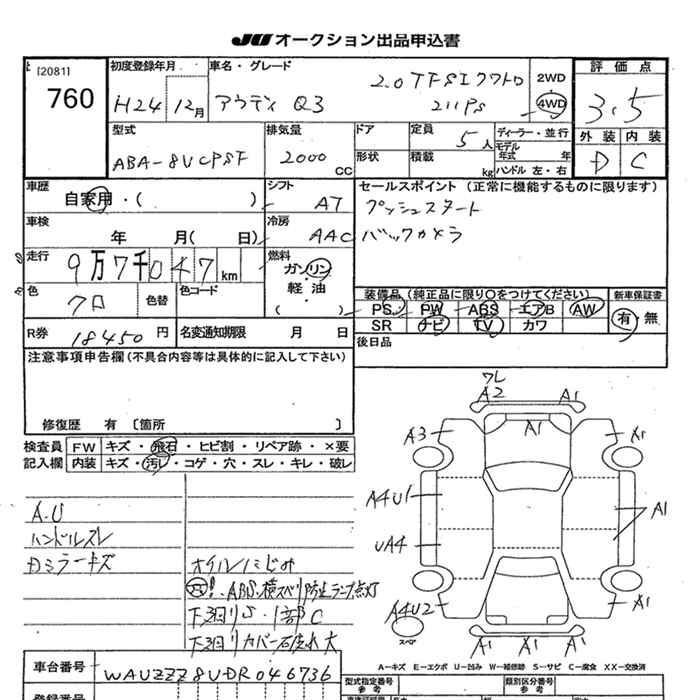 JU オークション出品申込書
[2081]
760
初度登録年月
H24 12月
車名・グレード
アウディ Q3
2.0 TFSI クワトロ
211PS
2WD
4WD
評価点
3.5
外装 内装
D C
型式
ABA-8UCPSF
排気量
2000 cc
ドア
形状
定員 5人
積載 kg
ディーラー・並行
モデル年式 年
ハンドル 左・右
車歴
自家用・( )
シフト
AT
セールスポイント (正常に機能するものに限ります)
プッシュスタート
バックカメラ
車検
年 月( 日)
冷房
AAC
走行
9万7千047km
燃料
ガソリン
軽・油
( )
色
クロ
色替
色コード
装備品 (純正品に限り○をつけてください)
PS PW ABS エアB AW
SR ナビ TV カワ
新車保証書
有・無
R券
18450円
名変通知期限 月 日
後日品
注意事項申告欄(不具合内容等は具体的に記入して下さい)
修復歴 有 〔箇所 〕
検査員記入欄
FW キズ・飛石・ヒビ割・リペア跡・×要
内装 キズ・汚レ・コゲ・穴・スレ・キレ・破レ
A.U
ハンドルスレ
オイルにじみ
ABS・横スベリ防止ランプ点灯
下回りS・1部C
下回りカバー石
大
ワレ
A2 A1
A1
A3 A1
A4U1 A1
UA4
A4U2 A1
A1 A1
スペア
A-キズ E-エクボ U-凹み W-補修跡 S-サビ C-腐食 XX-交換済
車台番号
WAUZZZ8UDR046736
型式指定番号
参考
類別区分番号
参考
登録番号